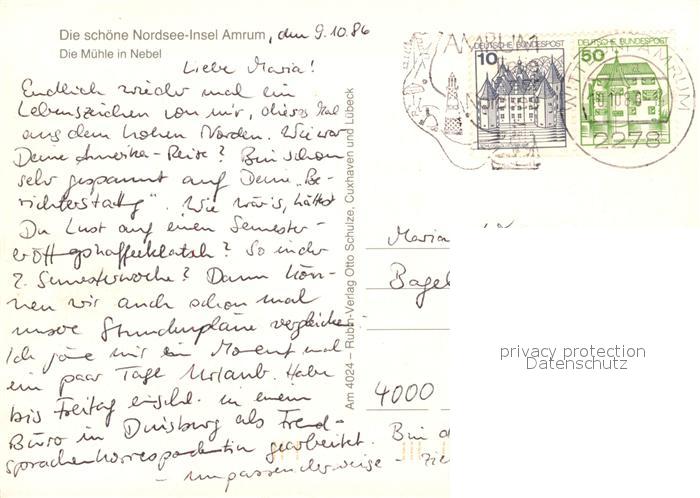 Die schöne Nordsee-Insel Amrum, den 9.10.86
Die Mühle in Nebel
Liebe Maria!
Endlich wieder mal ein
Lebenszeichen von mir, dieses Mal
aus dem hohen Norden. Wie war
Deine Amerika-Reise? Bin schon
sehr gespannt auf Deine "Be-
richterstattg". Wie wär's, hättest
Du Lust auf einen Semester-
eröffgskaffeeklatsch? So in der
2. Semesterwoche? Dann kön-
nen wir auch schon mal
unsere Stundenpläne vergleichen.
Ich gönne mir im Moment mal
ein paar Tage Urlaub. Habe
bis Freitag einschl. in einem
Büro in Duisburg als Fremd-
sprachenkorrespondentin gearbeitet. Bin d
- unpassenderweise - zie
Am 4024 – Rubin-Verlag Otto Schulze, Cuxhaven und Lübeck
AMRUM
10
DEUTSCHE BUNDESPOST
50
DEUTSCHE BUNDESPOST
WITTDÜN AMRUM
2278
Maria
Bagel
4000
privacy protection
Datenschutz